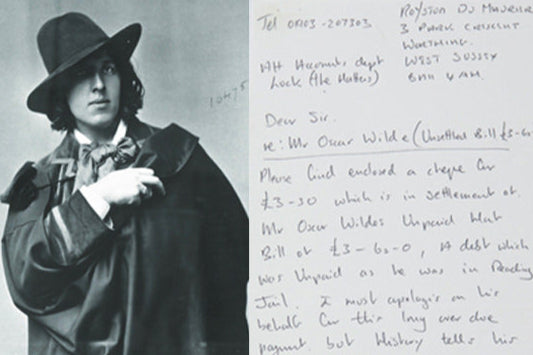 ROYSTON DU MAURIER
Tel 01903-207303
3 PARK CRESCENT
WORTHING.
WEST SUSSEX
Accounts dept
Lock (the Hatters)
Dear Sir.
re: Mr Oscar Wilde (Unsettled Bill £3-6s
Please find enclosed a cheque for
£3-30 which is in settlement of
Mr Oscar Wildes Unpaid Hat
Bill of £3-6s-0, A debt which
was Unpaid as he was in Reading
Jail. I must apologis on his
behalf for this long over due
payment but History tells his